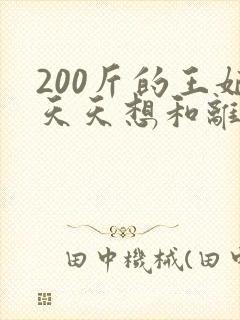 200斤的王
天天想和離
田中機械(田中